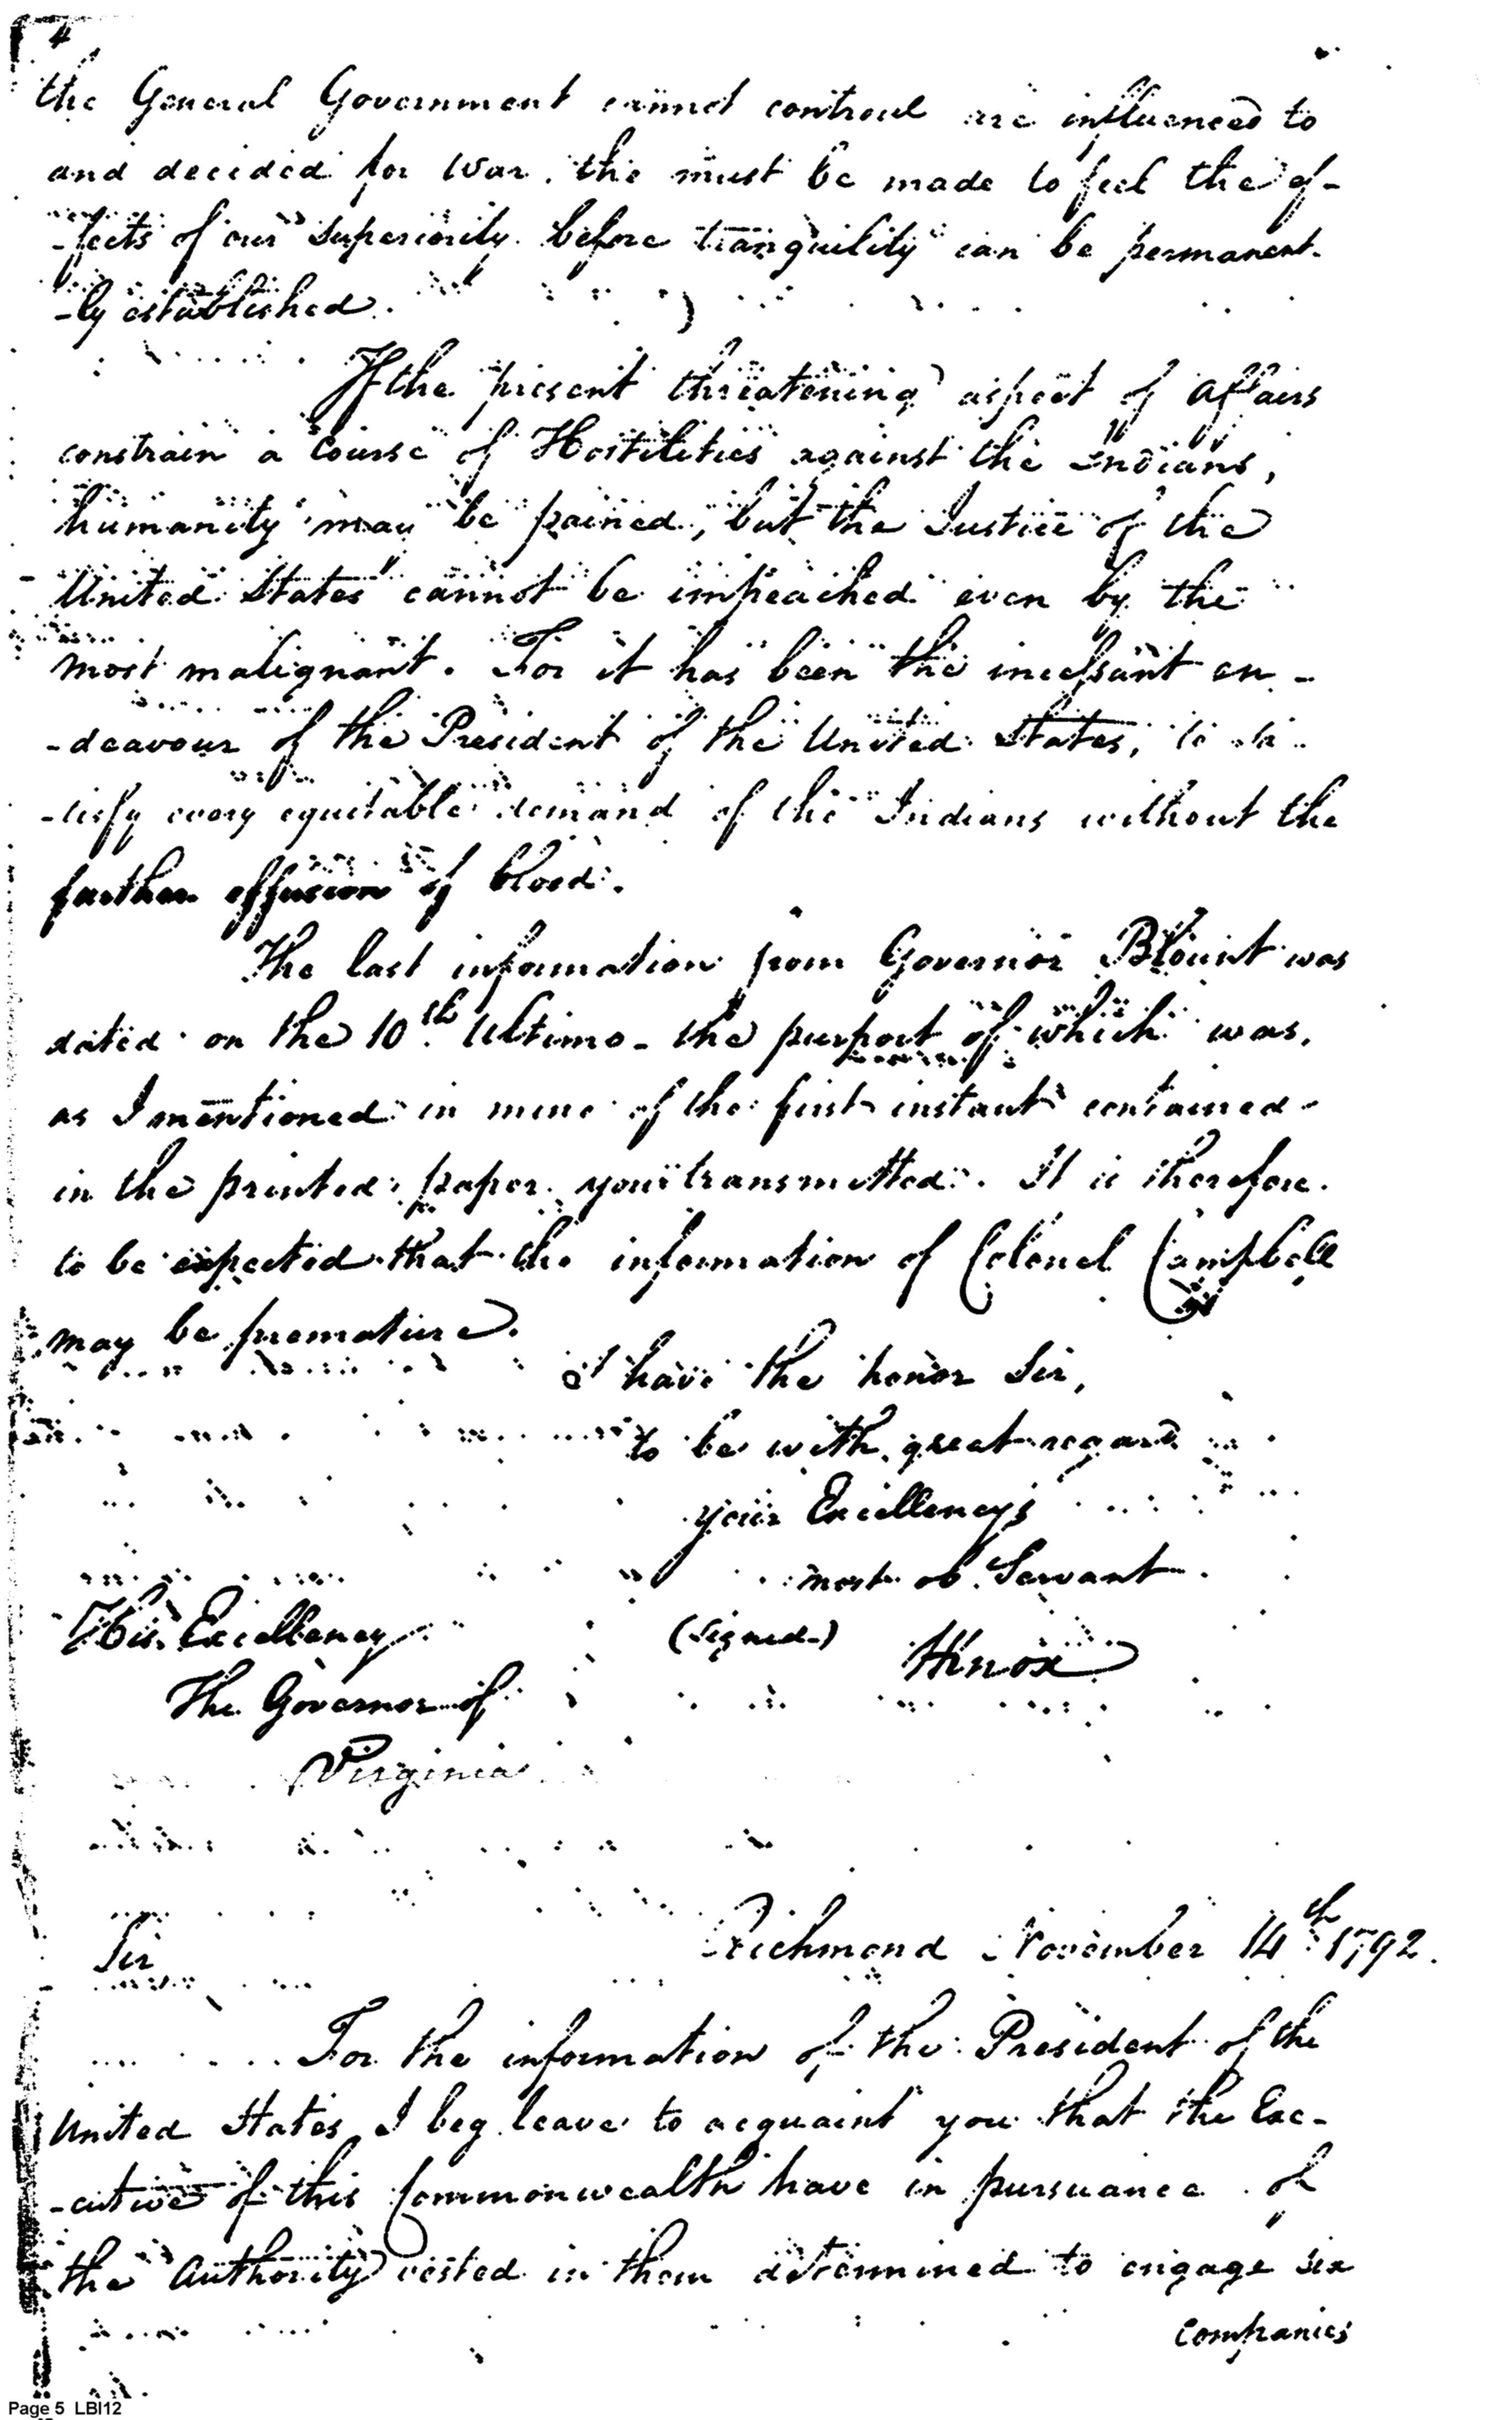 4
the General Government cannot controul are influenced to
and decided for War. the must be made to feel the ef-
-fects of our Superiority before tranquility can be permanent-
-ly established.
If the present threatening aspect of affairs
constrain a Course of Hostilities against the Indians,
humanity may be pained, but the Justice of the
United States cannot be impeached even by the
most malignant. For it has been the incessant en-
-deavour of the President of the United States, to sa-
-tisfy every equitable demand of the Indians without the
further effusion of blood.
The last information from Governor Blount was
dated on the 10th Ultimo - the purport of which was,
as I mentioned in mine of the first instant contained
in the printed paper your transmitted. It is therefore
to be expected that the information of Colonel Campbell
may be premature.
I have the honor Sir,
to be with great regard
your Excellencys
most ob. Servant
His Excellency (signed) HKnox
The Governor of
Virginia
Richmond November 14th 1792.
Sir
For the information of the President of the
United States I beg leave to acquaint you that the Exe-
-cutive of this Commonwealth have in pursuance of
the Authority vested in them determined to engage six
companies
Page 5 LBI12